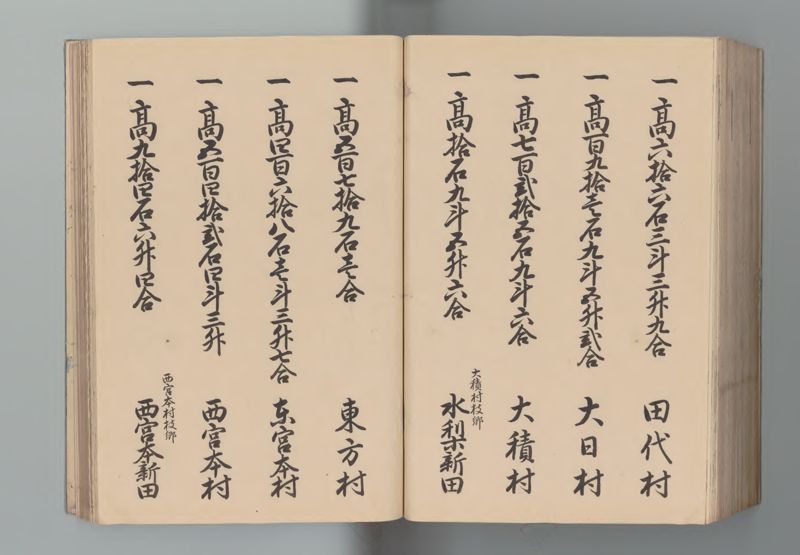 一高六拾六石三斗三升九合 田代村
一高百九拾壱石九斗五升弐合 大日村
一高七百弐拾五石九斗六合 大積村
一高拾石九斗五升六合 大積村枝郷 水梨新田
一高五百七拾九石壱合 東方村
一高四百六拾八石壱斗三升七合 东宮本村
一高五百四拾弐石四斗三升 西宮本村
一高九拾四石六升四合 西宮本村枝郷 西宮本新田